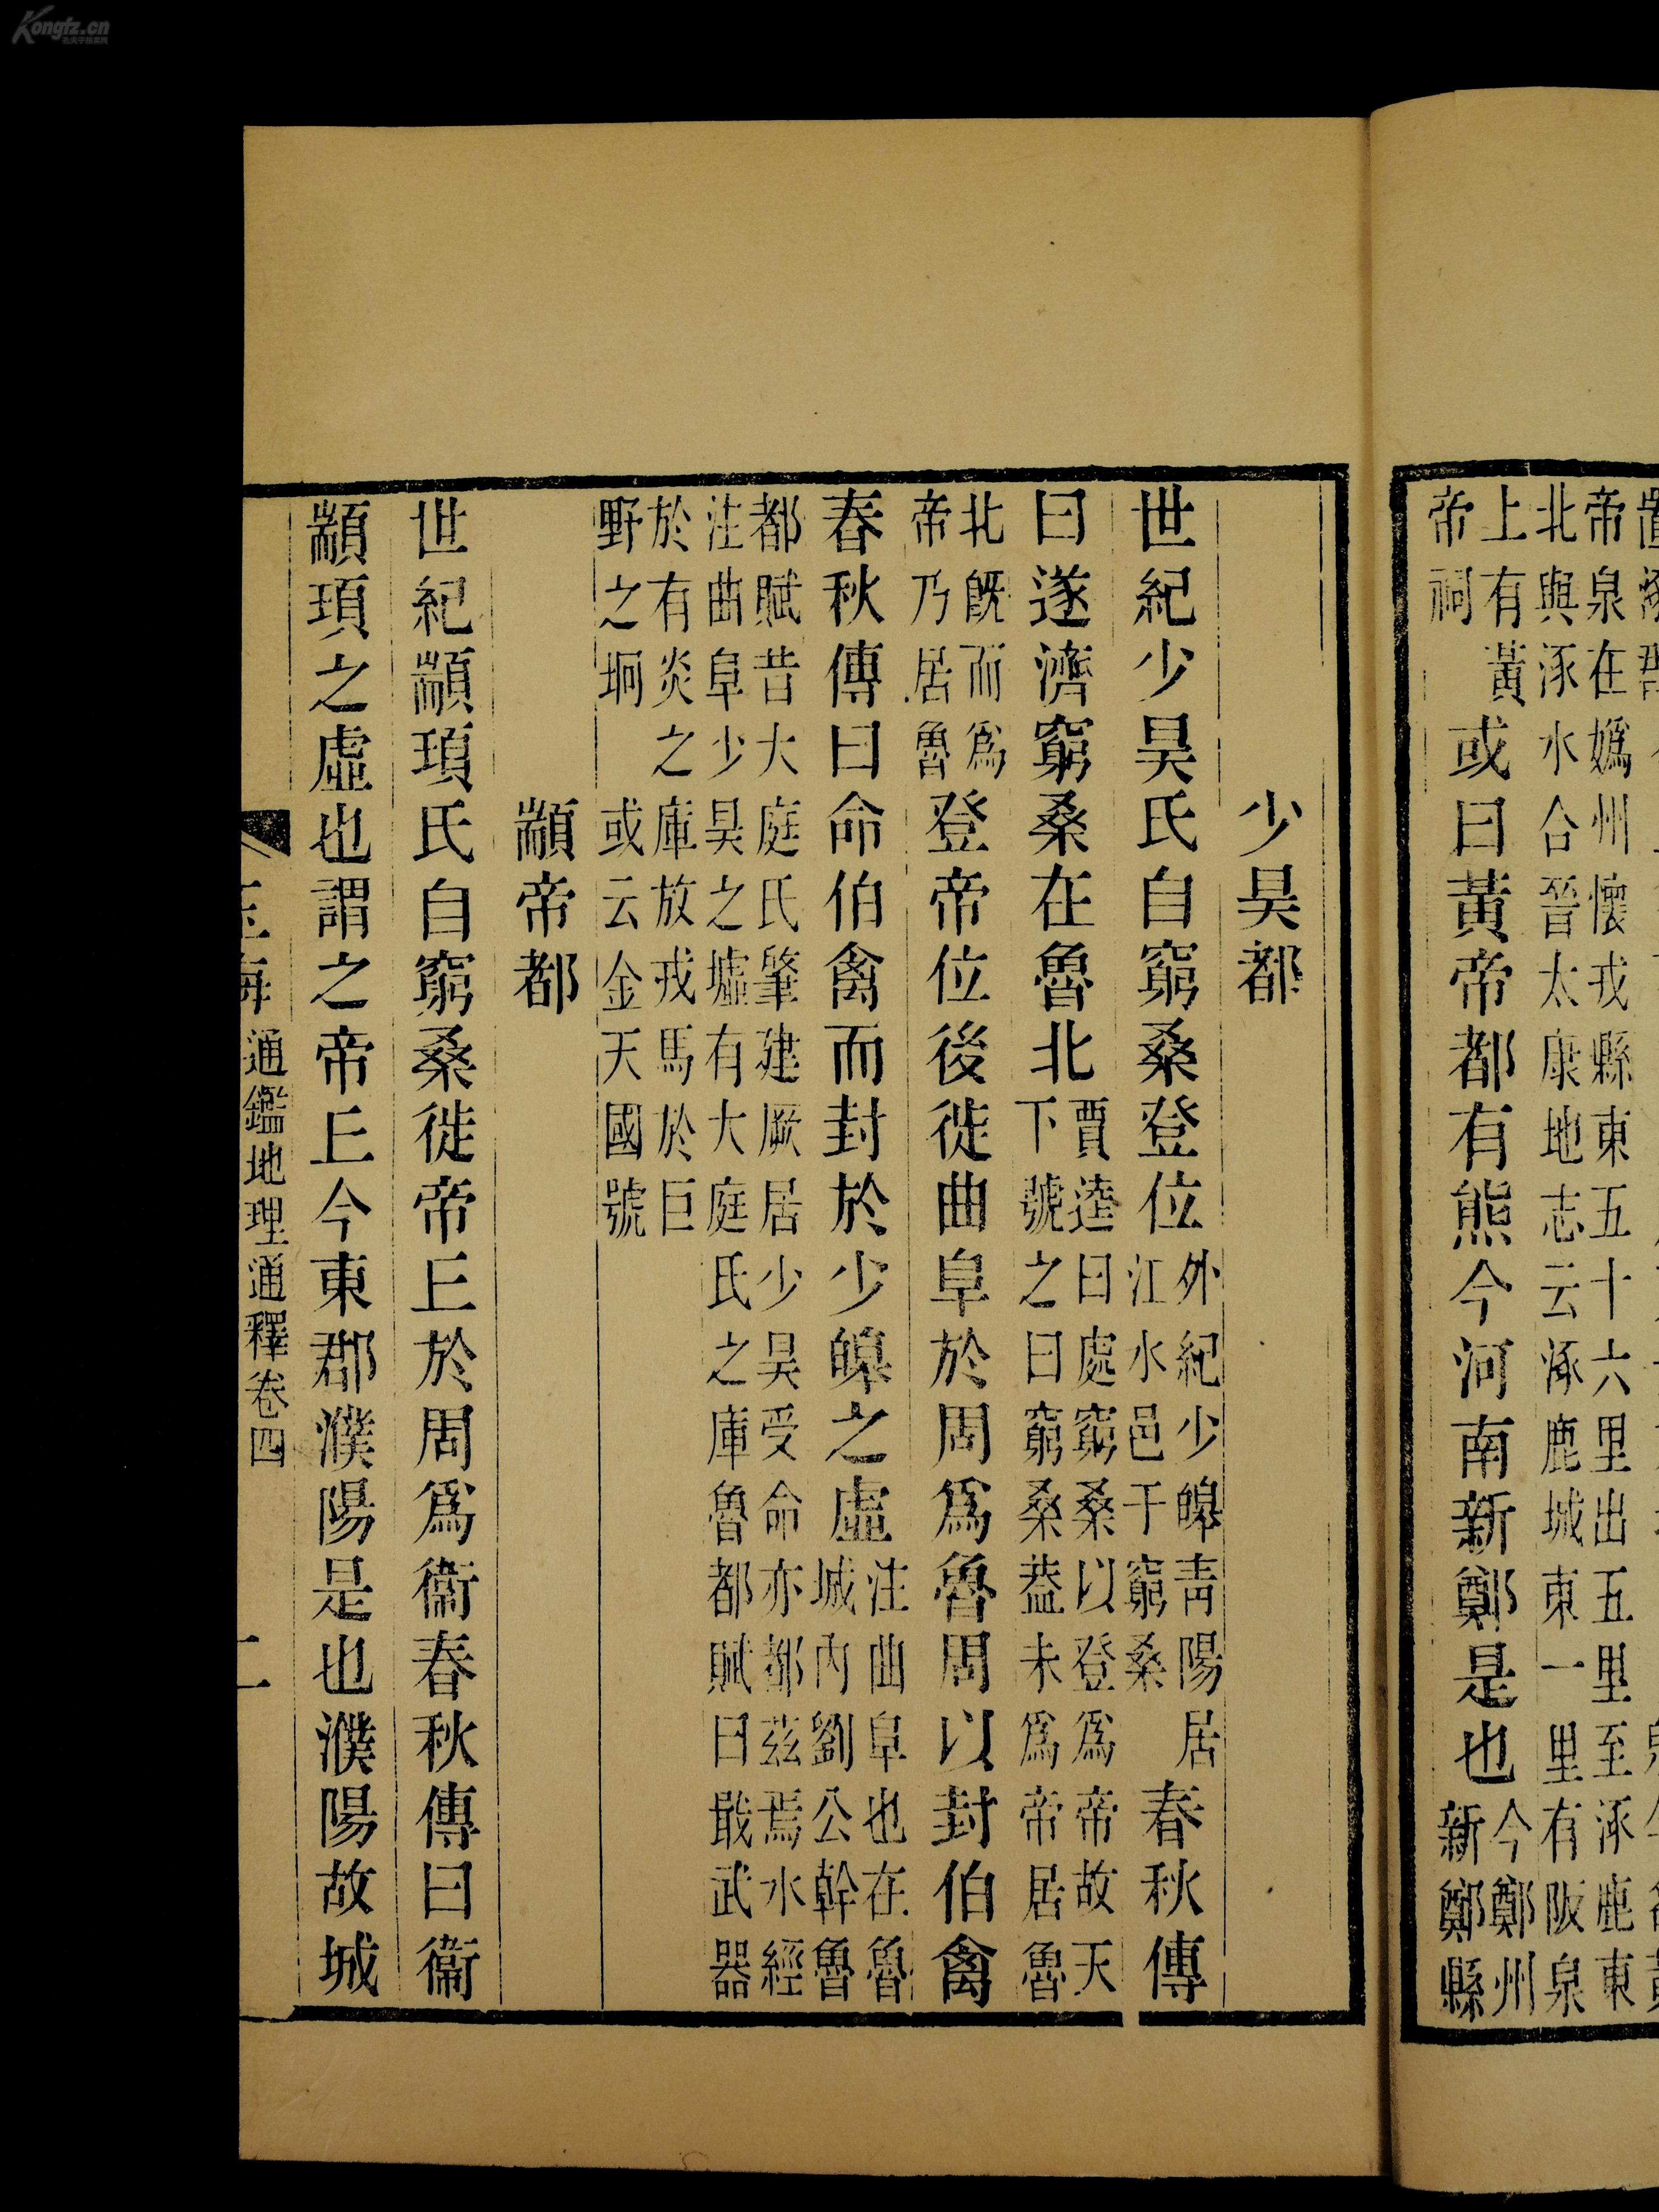 帝泉在嬀州懷戎縣東五十六里出五里至涿鹿東
北與涿水合晉太康地志云涿鹿城東一里有阪泉
上有黃
帝祠
或曰黃帝都有熊今河南新鄭是也
今鄭州
新鄭縣
少昊都
世紀少昊氏自窮桑登位
外紀少皞青陽居
江水邑于窮桑
春秋傳
曰遂濟窮桑在魯北
賈逵曰處窮桑以登爲帝故天
下號之曰窮桑葢未爲帝居魯
北旣而爲
帝乃居魯
登帝位後徙曲阜於周爲魯周以封伯禽
春秋傳曰命伯禽而封於少皞之虛
注曲阜也在魯
城內劉公幹魯
都賦昔大庭氏肇建厥居少昊受命亦都茲焉水經
注曲阜少昊之墟有大庭氏之庫魯都賦曰戢武器
於有炎之庫放戎馬於巨
野之坰 或云金天國號
顓帝都
世紀顓頊氏自窮桑徙帝丘於周爲衞春秋傳曰衞
顓頊之虛也謂之帝丘今東郡濮陽是也濮陽故城
玉海 通鑑地理通釋卷四 二
Kongfz.cn